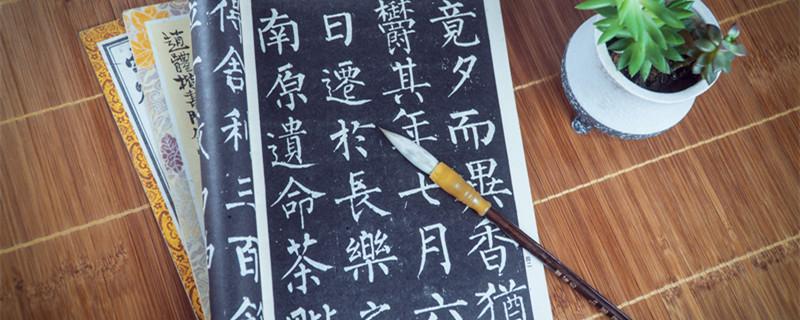 竟夕而異香猶
鬱其年七月六
日遷於長樂之
南原遺命茶
得舍利三百